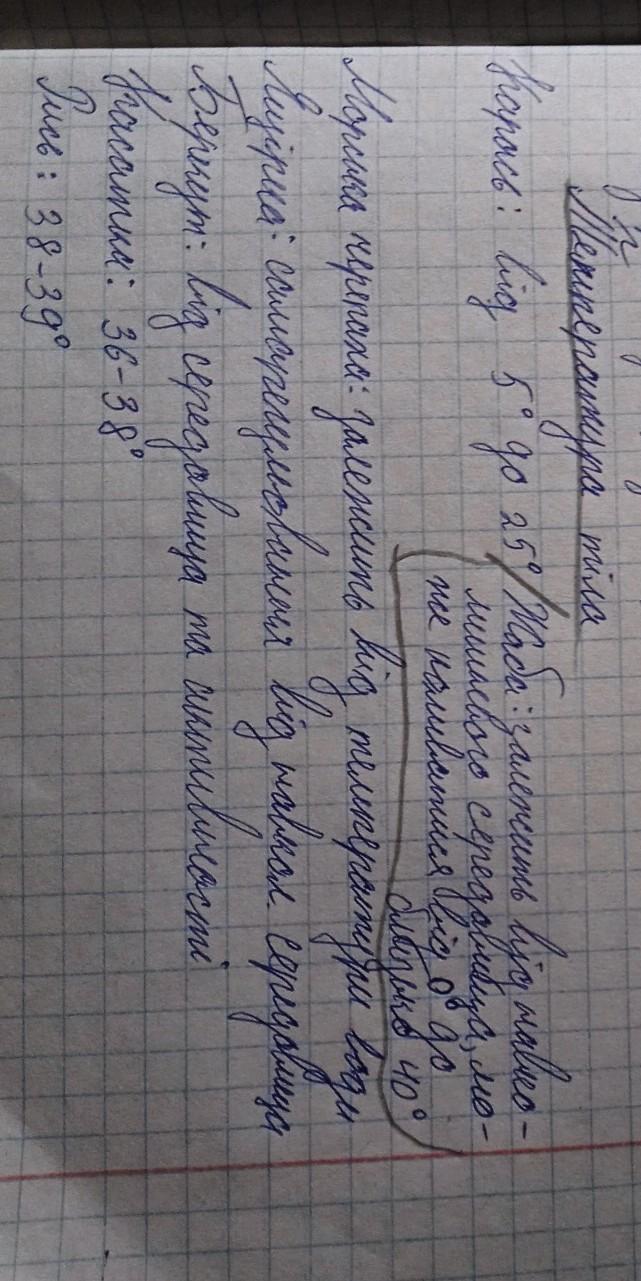 Температура тіла
Карась: від 5° до 25°/ Жаба: залежить від навко-
лишнього середовища, мо-
же коливатися від 0° до
близько 40°
Морська черепаха: залежить від температури води
Ящірка: саморегулювання від навкол. середовища
Беркут: від середовища та активності
Касатка: 36-38°
Рись: 38-39°